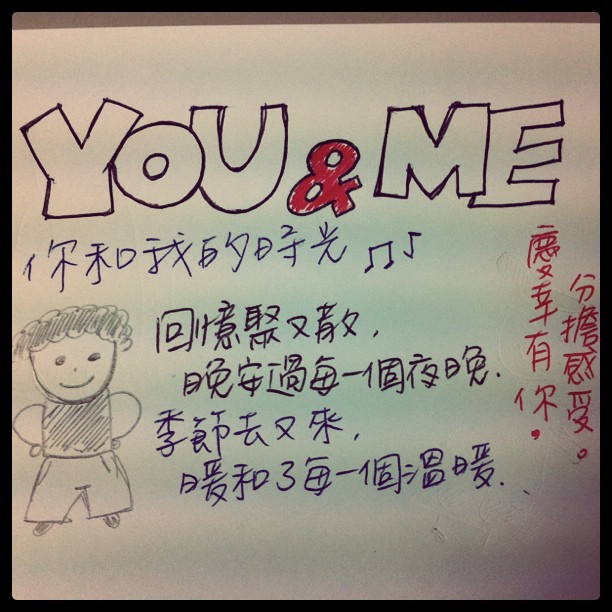 YOU & ME
你和我的時光
回憶聚又散,
晚安過每一個夜晚.
季節去又來,
暖和了每一個溫暖.
慶幸有你.
分擔感受。